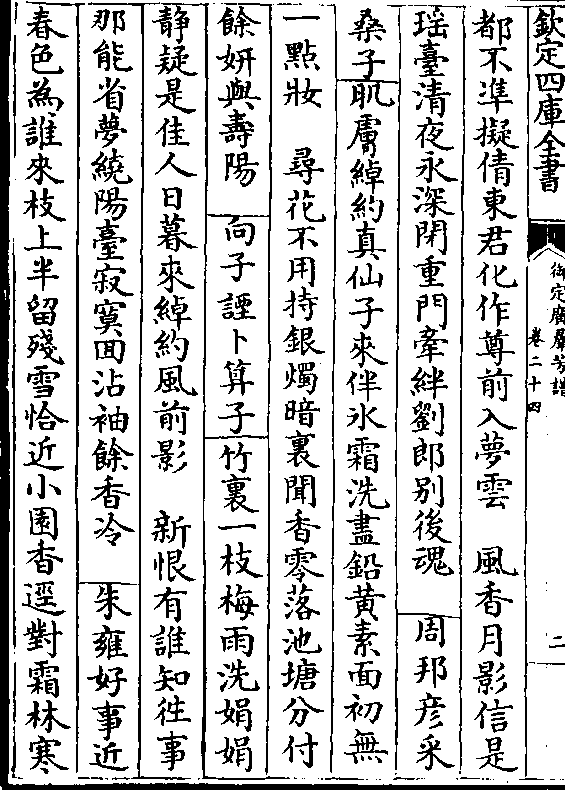 欽定四庫全書
御定廣羣芳譜
卷二十四
二
都不准擬倩東君化作尊前入夢雲　風香月影信是
瑶臺清夜永深閉重門牽絆劉郎别後魂　周邦彦采
桑子肌膚綽約真仙子來伴氷霜洗盡鉛黄素面初無
一點妝　尋花不用持銀燭暗裏聞香零落池塘分付
餘妍與壽陽　向子諲卜算子竹裏一枝梅雨洗娟娟
静疑是佳人日暮來綽約風前影　新恨有誰知徃事
那能省夢繞陽臺寂寞囬沾袖餘香冷　朱雍好事近
春色為誰來枝上半留殘雪恰近小園香逕對霜林寒